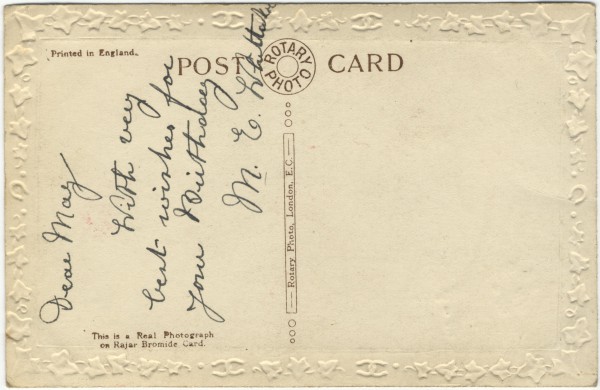 Printed in England.
POST CARD
ROTARY PHOTO
Dear May
With very
best wishes for
your Birthday
M. E. Whittaker
Rotary Photo, London, E.C.
This is a Real Photograph
on Rajar Bromide Card.